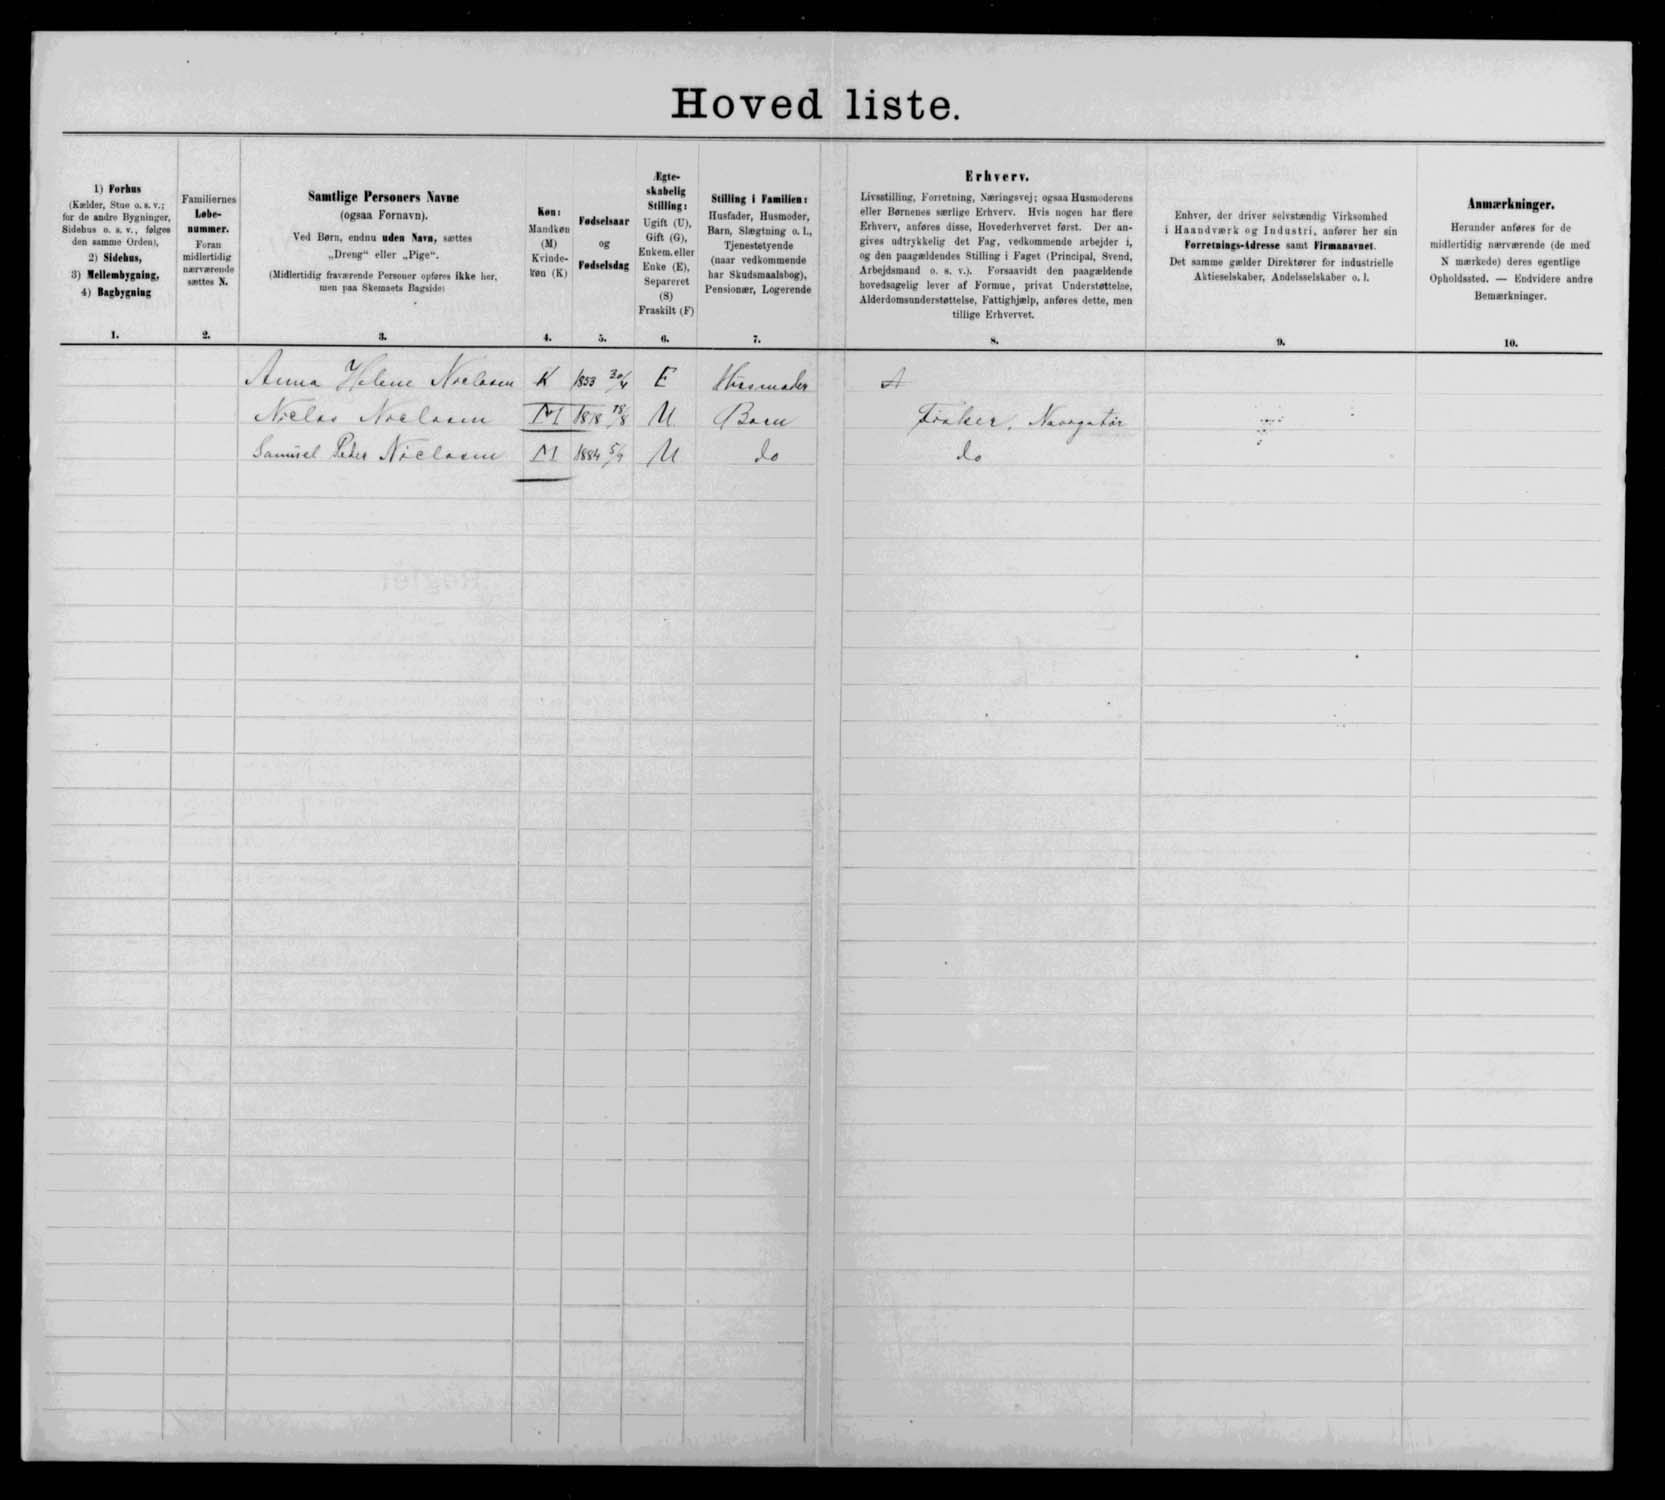 Hoved liste.
1) Forhus
(Kælder, Stue o. s. v.;
for de andre Bygninger,
Sidehus o. s. v., følges
den samme Orden),
2) Sidehus,
3) Mellembygning,
4) Bagbygning
1.
Familiernes
Løbe-
nummer.
Foran
midlertidig
nærværende
sættes N.
2.
Samtlige Personers Navne
(ogsaa Fornavn).
Ved Børn, endnu uden Navn, sættes
„Dreng“ eller „Pige“.
(Midlertidig fraværende Personer opføres ikke her,
men paa Skemaets Bagside)
3.
Køn:
Mandkøn
(M)
Kvinde-
køn (K)
4.
Fødselsaar
og
Fødselsdag
5.
Ægte-
skabelig
Stilling:
Ugift (U),
Gift (G),
Enkem. eller
Enke (E),
Separeret
(S)
Fraskilt (F)
6.
Stilling i Familien:
Husfader, Husmoder,
Barn, Slægtning o. l.,
Tjenestetyende
(naar vedkommende
har Skudsmaalsbog),
Pensionær, Logerende
7.
Erhverv.
Livsstilling, Forretning, Næringsvej; ogsaa Husmoderens
eller Børnenes særlige Erhverv. Hvis nogen har flere
Erhverv, anføres disse, Hovederhvervet først. Der an-
gives udtrykkelig det Fag, vedkommende arbejder i,
og den paagældendes Stilling i Faget (Principal, Svend,
Arbejdsmand o. s. v.). Forsaavidt den paagældende
hovedsagelig lever af Formue, privat Understøttelse,
Alderdomsunderstøttelse, Fattighjælp, anføres dette, men
tillige Erhvervet.
8.
Enhver, der driver selvstændig Virksomhed
i Haandværk og Industri, anfører her sin
Forretnings-Adresse samt Firmanavnet.
Det samme gælder Direktører for industrielle
Aktieselskaber, Andelsselskaber o. l.
9.
Anmærkninger.
Herunder anføres for de
midlertidig nærværende (de med
N mærkede) deres egentlige
Opholdssted. — Endvidere andre
Bemærkninger.
10.
Anna Helene Niclasen K 1853 30/4 E Husmoder
Niclas Niclasen M 18/8 U Barn Fisker, Navigatør
Samuel Peder Niclasen M 1884 U do do